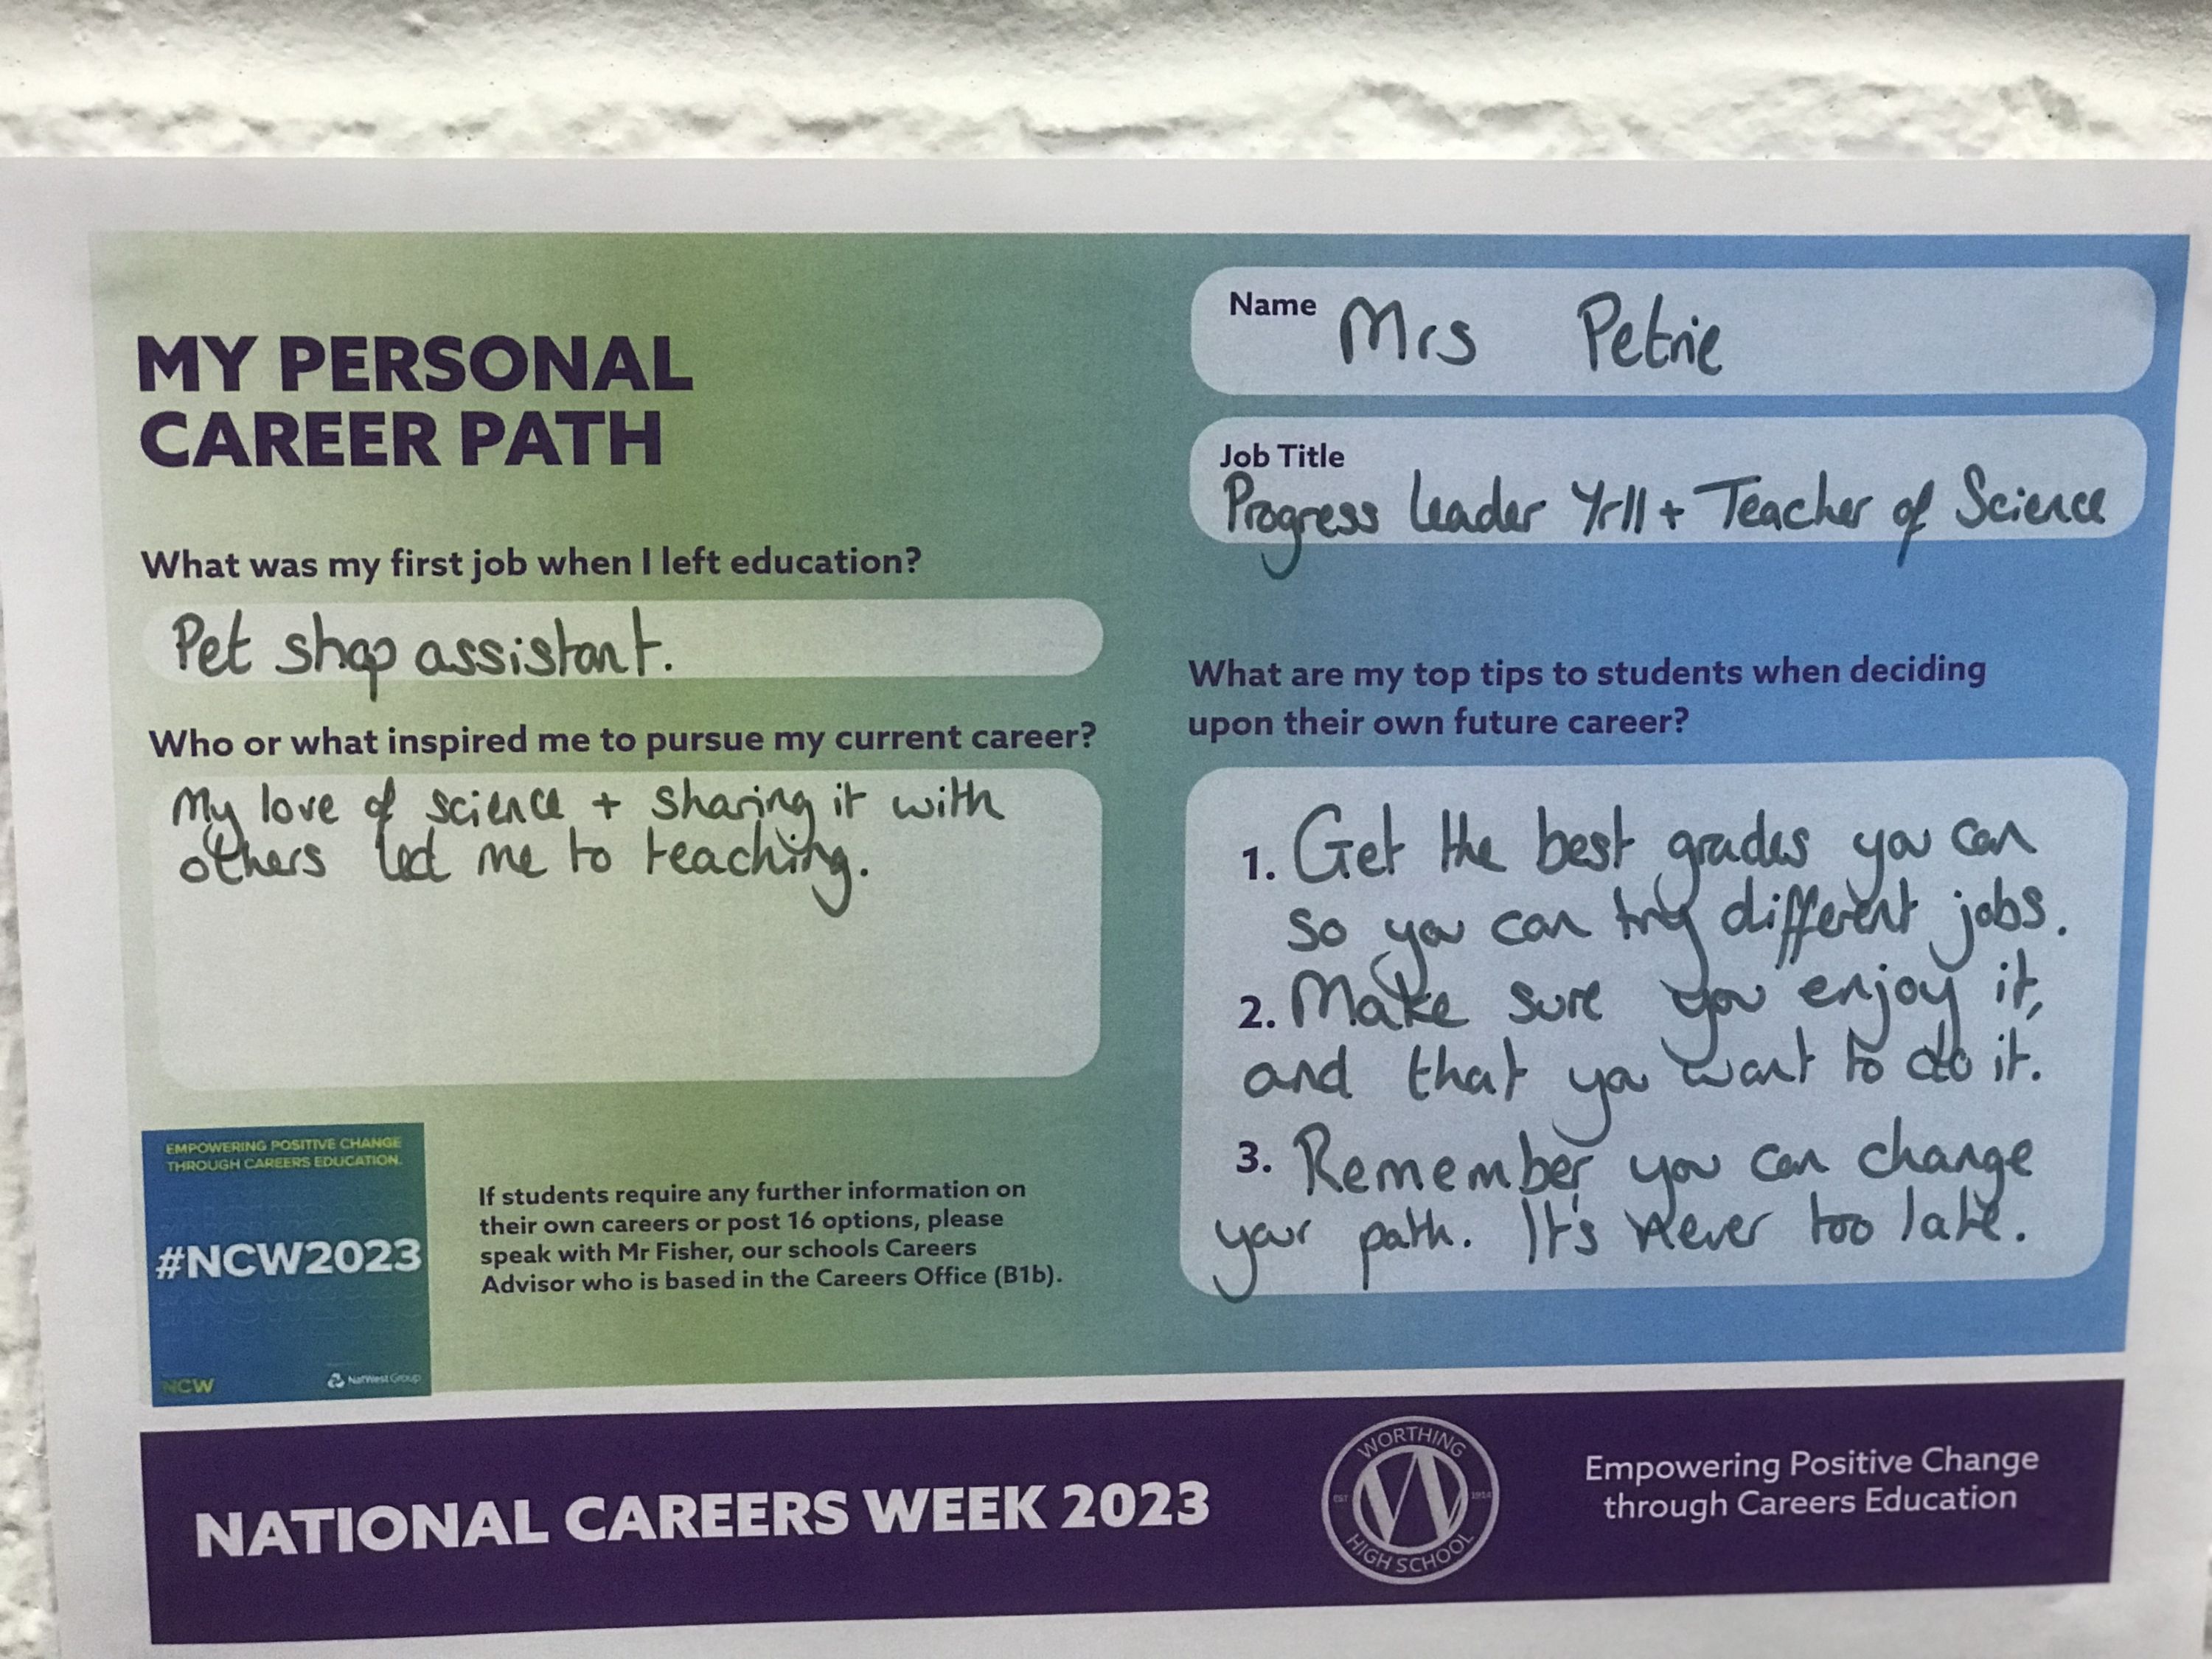 MY PERSONAL
CAREER PATH
What was my first job when I left education?
Pet shop assistant.
Who or what inspired me to pursue my current career?
My love of science + sharing it with
others led me to teaching.
EMPOWERING POSITIVE CHANGE
THROUGH CAREERS EDUCATION.
#NCW2023
NCW
NatWest Group
If students require any further information on
their own careers or post 16 options, please
speak with Mr Fisher, our schools Careers
Advisor who is based in the Careers Office (B1b).
Name Mrs Petrie
Job Title
Progress Leader Yr11 + Teacher of Science
What are my top tips to students when deciding
upon their own future career?
1. Get the best grades you can
so you can try different jobs.
2. Make sure you enjoy it,
and that you want to do it.
3. Remember you can change
your path. It's never too late.
NATIONAL CAREERS WEEK 2023
WORTHING
EST 1914
HIGH SCHOOL
Empowering Positive Change
through Careers Education